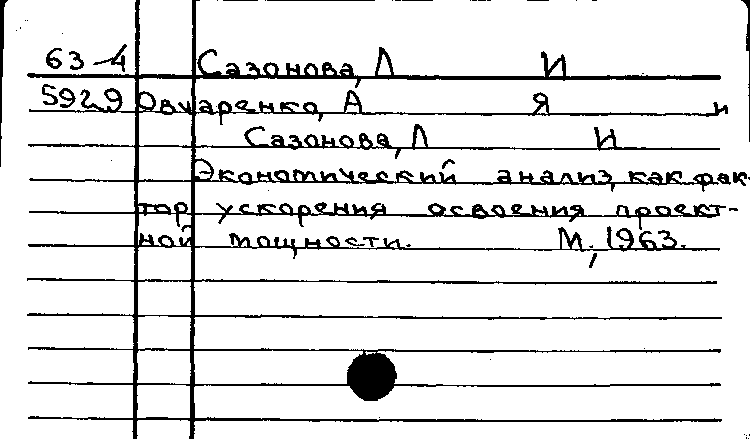 63-4 Сазонова, Л И
5929 Овчаренко, А Я и
Сазонова, Л И
Экономический анализ, как фак-
тор ускорения освоения проект-
ной мощности. М., 1963.